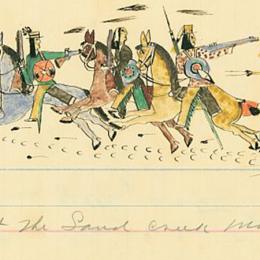 The Sand Creek